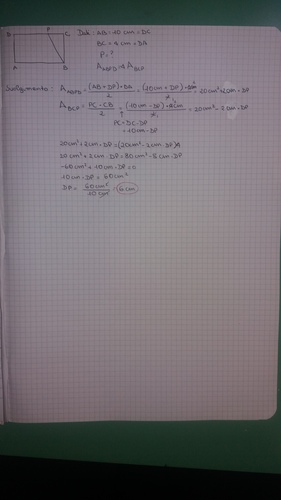 D P C
A B
Dati: AB = 10 cm = DC
BC = 4 cm = DA
P = ?
A_ABPD = 4 A_BCP
Svolgimento: A_ABPD = (AB + DP) · DA / 2 = (10 cm + DP) · 4cm / 2 = 20 cm² + 2cm · DP
A_BCP = PC · CB / 2 = (10 cm - DP) · 4cm / 2 = 20cm² - 2 cm · DP
PC = DC - DP
= 10cm - DP
20cm² + 2cm · DP = (20cm² - 2cm · DP)4
20 cm² + 2 cm · DP = 80 cm² - 8 cm · DP
-60 cm² + 10 cm · DP = 0
10 cm · DP = 60 cm²
DP = 60 cm² / 10 cm = 6 cm